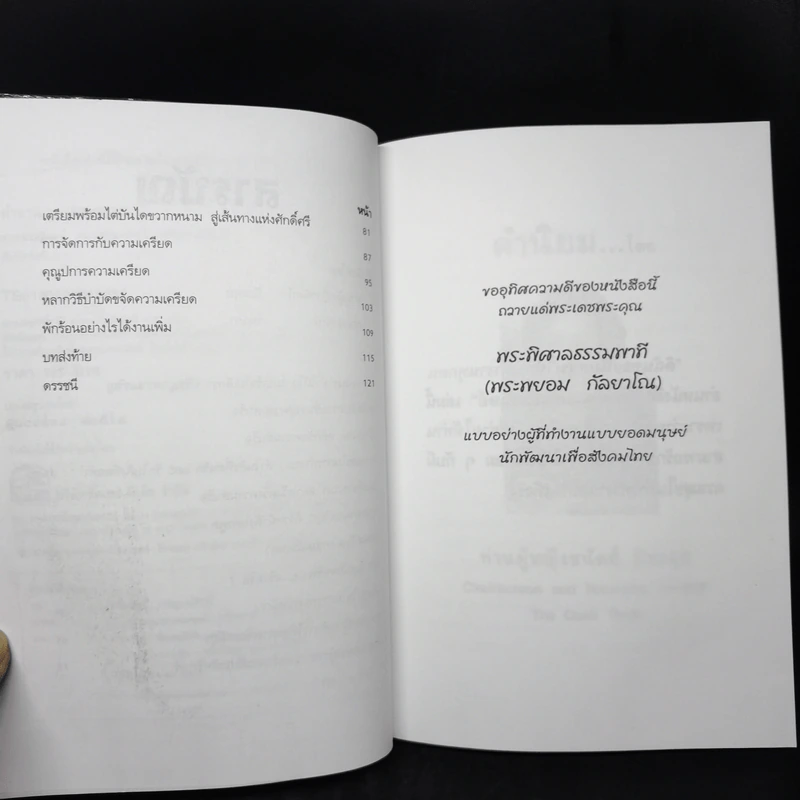 หน้า
เตรียมพร้อมไต่บันไดขวากหนาม สู่เส้นทางแห่งศักดิ์ศรี 81
การจัดการกับความเครียด 87
คุณูปการความเครียด 95
หลากวิธีบำบัดขจัดความเครียด 103
พักร้อนอย่างไรได้งานเพิ่ม 109
บทส่งท้าย 115
ดรรชนี 121
ขออุทิศความดีของหนังสือนี้
ถวายแด่พระเดชพระคุณ
พระพิศาลธรรมพาที
(พระพยอม กัลยาโณ)
แบบอย่างผู้ที่ทำงานแบบยอดมนุษย์
นักพัฒนาเพื่อสังคมไทย